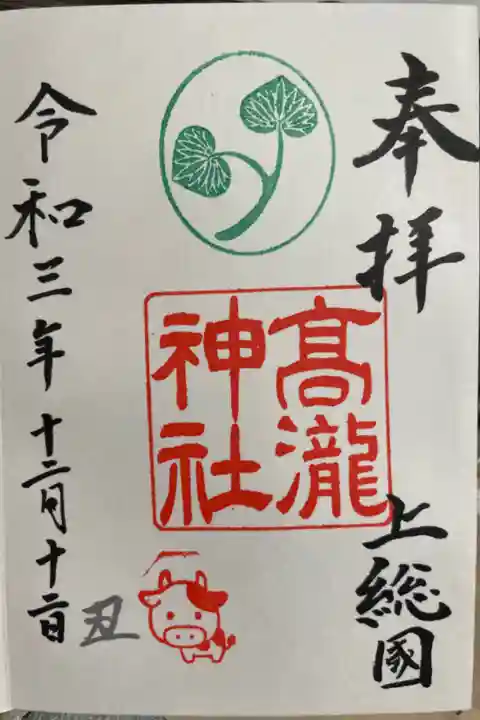 奉拝
上総國
髙瀧
神社
令和三年十二月十二日
丑